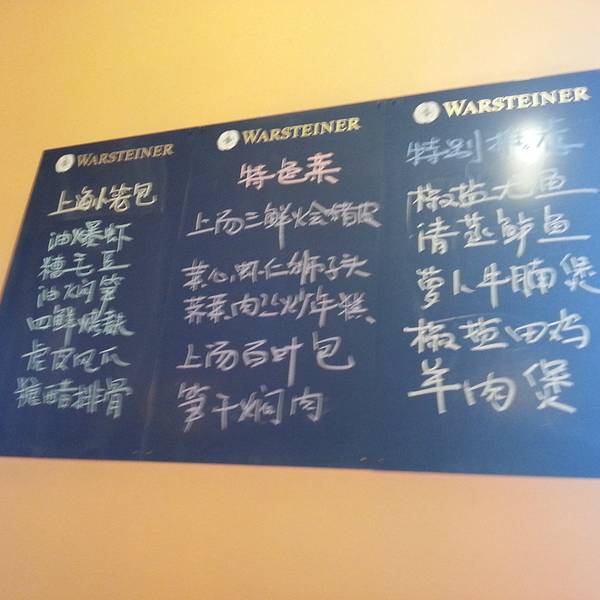 WARSTEINER
上海小笼包
油爆虾
糟毛豆
油焖笋
四鲜烤麸
虎皮凤爪
糖醋排骨
WARSTEINER
特色菜
上汤三鲜烩猪皮
菜心虾仁狮子头
荠菜肉丝炒年糕
上汤百叶包
笋干焖肉
WARSTEINER
特别推荐
椒盐九鱼
清蒸鲈鱼
萝卜牛腩煲
椒盐田鸡
羊肉煲